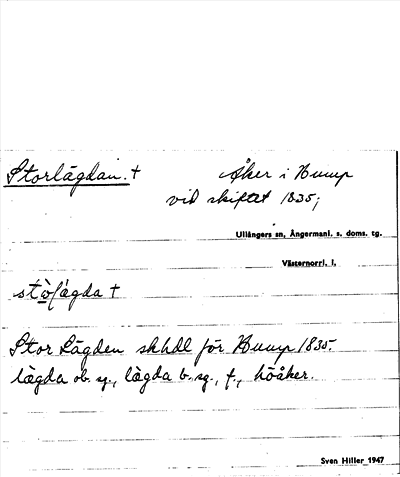 Storlägdan. †
Åker i Hump
vid skiftet 1835;
Ullångers sn, Ångermanl. s. doms. tg.
Västernorrl. l.
Stor Lägden skhdl för Hump 1835.
lägda ob. sg., lägda b. sg., f., höåker.
Sven Hiller 1947